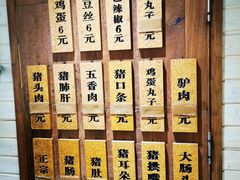 鸡蛋6元
豆丝6元
辣椒6元
丸子元
猪头肉
猪肺肝
五香肉
猪口条
鸡蛋丸子
驴肉
正宗
猪肠
猪肚
猪耳朵
猪拱嘴
大肠头